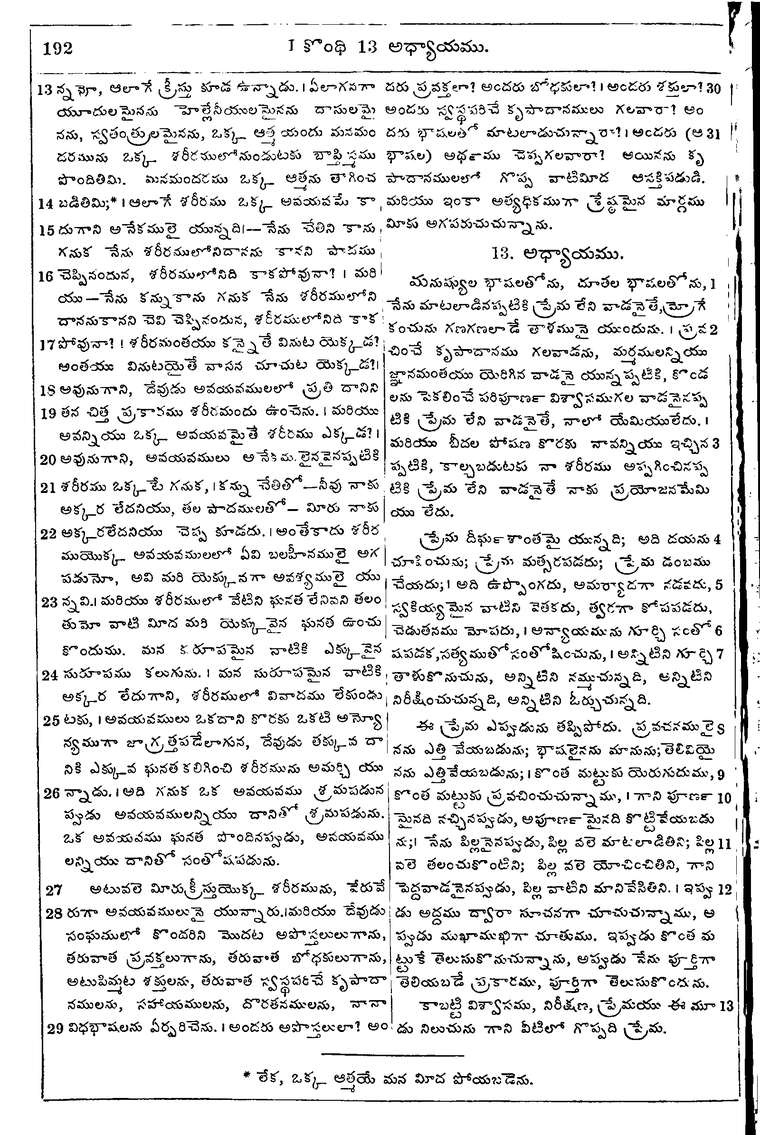 192
I కొంథి 13 అధ్యాయము.
13 న్నవో, ఆలాగే క్రీస్తు కూడ ఉన్నాడు. । ఏలాగనగా
యూదులమైనను హెల్లేనీయులమైనను దాసులమై
నను, స్వతంత్రులమైనను, ఒక్క ఆత్మ యందు మనమం
దరమును ఒక్క శరీరములోనుండుటకు బాప్తిస్మము
పొందితిమి. మనమందరము ఒక్క ఆత్మను తాగించ
14 బడితిమి;* । ఆలాగే శరీరము ఒక్క అవయవమే కా
15 దుగాని అనేకములై యున్నది।—నేను చేతిని కాను,
గనుక నేను శరీరములోనిదానను కానని పాదము
16 చెప్పినందున, శరీరములోనిది కాకపోవునా? । మరి
యు—నేను కన్నుకాను గనుక నేను శరీరములోని
దాననుకానని చెవి చెప్పినందున, శరీరములోనిది కాక
17 పోవునా? । శరీరమంతయు కన్నైతే వినుట యెక్కడ?
అంతయు వినుటయైతే వాసన చూచుట యెక్కడ?।
18 అవునుగాని, దేవుడు అవయవములలో ప్రతి దానిని
19 తన చిత్త ప్రకారము శరీరమందు ఉంచెను. । మరియు
అవన్నియు ఒక్క అవయవమైతే శరీరము ఎక్కడ?।
20 అవునుగాని, అవయవములు అనేకములైనవైనప్పటికి
21 శరీరము ఒక్కటే గనుక, । కన్ను చేతితో—నీవు నాకు
అక్కర లేదనియు, తల పాదములతో— మీరు నాకు
22 అక్కరలేదనియు చెప్ప కూడదు. । అంతేకాదు శరీర
ముయొక్క అవయవములలో ఏవి బలహీనములై అగ
పడునో, అవి మరి యెక్కువగా అవశ్యములై యు
23 న్నవి. । మరియు శరీరములో వేటిని ఘనత లేనివని తలం
తుమో వాటి మీద మరి యెక్కువైన ఘనత ఉంచు
కొందుము. మన కురూపమైన వాటికి ఎక్కువైన
24 సురూపము కలుగును. । మన సురూపమైన వాటికి
అక్కర లేదుగాని, శరీరములో వివాదము లేకుండు
25 టకు, । అవయవములు ఒకదాని కొరకు ఒకటి అన్యో
న్యముగా జాగ్రత్తపడేలాగున, దేవుడు తక్కువ దా
నికి ఎక్కువ ఘనత కలిగించి శరీరమును అమర్చి యు
26 న్నాడు. । అది గనుక ఒక అవయవము శ్రమపడున
ప్పుడు అవయవములన్నియు దానితో శ్రమపడును.
ఒక అవయవము ఘనత పొందినప్పుడు, అవయవము
లన్నియు దానితో సంతోషపడును.
27 అటువలె మీరు క్రీస్తుయొక్క శరీరమును, వేరువే
28 రుగా అవయవములునై యున్నారు. । మరియు దేవుడు
సంఘములో కొందరిని మొదట అపొస్తలులుగాను,
తరువాత ప్రవక్తలుగాను, తరువాత బోధకులుగాను,
అటుపిమ్మట శక్తులను, తరువాత స్వస్థపరిచే కృపాదా
నములను, సహాయములను, దొరతనములను, నానా
29 విధభాషలను ఏర్పరిచెను. । అందరు అపొస్తలులా? అం
దరు ప్రవక్తలా? అందరు బోధకులా? । అందరు శక్తులా? 30
అందరు స్వస్థపరిచే కృపాదానములు గలవారా? అం
దరు భాషలతో మాటలాడుచున్నారా? । అందరు (ఆ 31
భాషల) అర్థము చెప్పగలవారా? అయినను కృ
పాదానములలో గొప్ప వాటిమీద ఆసక్తిపడుడి.
మరియు ఇంకా అత్యధికముగా శ్రేష్ఠమైన మార్గము
మీకు అగపరుచుచున్నాను.
13. అధ్యాయము.
మనుష్యుల భాషలతోను, దూతల భాషలతోను, 1
నేను మాటలాడినప్పటికి ప్రేమ లేని వాడనైతే, మ్రోగే
కంచును గణగణలాడే తాళమునై యుందును. । ప్రవ 2
చించే కృపాదానము గలవాడను, మర్మములన్నియు
జ్ఞానమంతయు యెరిగిన వాడనై యున్నప్పటికి, కొండ
లను పెకలించే పరిపూర్ణ విశ్వాసముగల వాడనైనప్ప
టికి ప్రేమ లేని వాడనైతే, నాలో యేమియులేదు. ।
మరియు బీదల పోషణ కొరకు నావన్నియు ఇచ్చిన 3
ప్పటికి, కాల్చబడుటకు నా శరీరము అప్పగించినప్ప
టికి ప్రేమ లేని వాడనైతే నాకు ప్రయోజనమేమి
యు లేదు.
ప్రేమ దీర్ఘశాంతమై యున్నది; అది దయను 4
చూపించును; ప్రేమ మత్సరపడదు; ప్రేమ డంబము
చేయదు; । అది ఉప్పొంగదు, అమర్యాదగా నడవదు, 5
స్వకియ్యమైన వాటిని వెతకదు, త్వరగా కోపపడదు,
చెడుతనము మోపదు, । అన్యాయమును గూర్చి సంతో 6
షపడక, సత్యముతో సంతోషించును, । అన్నిటిని గూర్చి 7
తాళుకొనుచును, అన్నిటిని నమ్ముచున్నది, అన్నిటిని
నిరీక్షించుచున్నది, అన్నిటిని ఓర్చుచున్నది.
ఈ ప్రేమ ఎప్పుడును తప్పిపోదు. ప్రవచనములై 8
నను ఎత్తి వేయబడును; భాషలైనను మానును; తెలివియై
నను ఎత్తివేయబడును; । కొంత మట్టుకు యెరుగుదుము, 9
కొంత మట్టుకు ప్రవచించుచున్నాము, । గాని పూర్ణ 10
మైనది వచ్చినప్పుడు, అపూర్ణమైనది కొట్టివేయబడు
ను;। నేను పిల్లనైనప్పుడు, పిల్ల వలె మాటలాడితిని; పిల్ల 11
వలె తలంచుకొంటిని; పిల్ల వలె యోచించితిని, గాని
పెద్దవాడనైనప్పుడు, పిల్ల వాటిని మానివేసితిని. । ఇప్పు 12
డు అద్దము ద్వారా సూచనగా చూచుచున్నాము, అ
ప్పుడు ముఖాముఖిగా చూతుము. ఇప్పుడు కొంత మ
ట్టుకే తెలుసుకొనుచున్నాను, అప్పుడు నేను పూర్తిగా
తెలియబడే ప్రకారము, పూర్తిగా తెలుసుకొందును.
కాబట్టి విశ్వాసము, నిరీక్షణ, ప్రేమయు ఈ మూ 13
డు నిలుచును గాని వీటిలో గొప్పది ప్రేమ.
* లేక, ఒక్క ఆత్మయే మన మీద పోయబడెను.